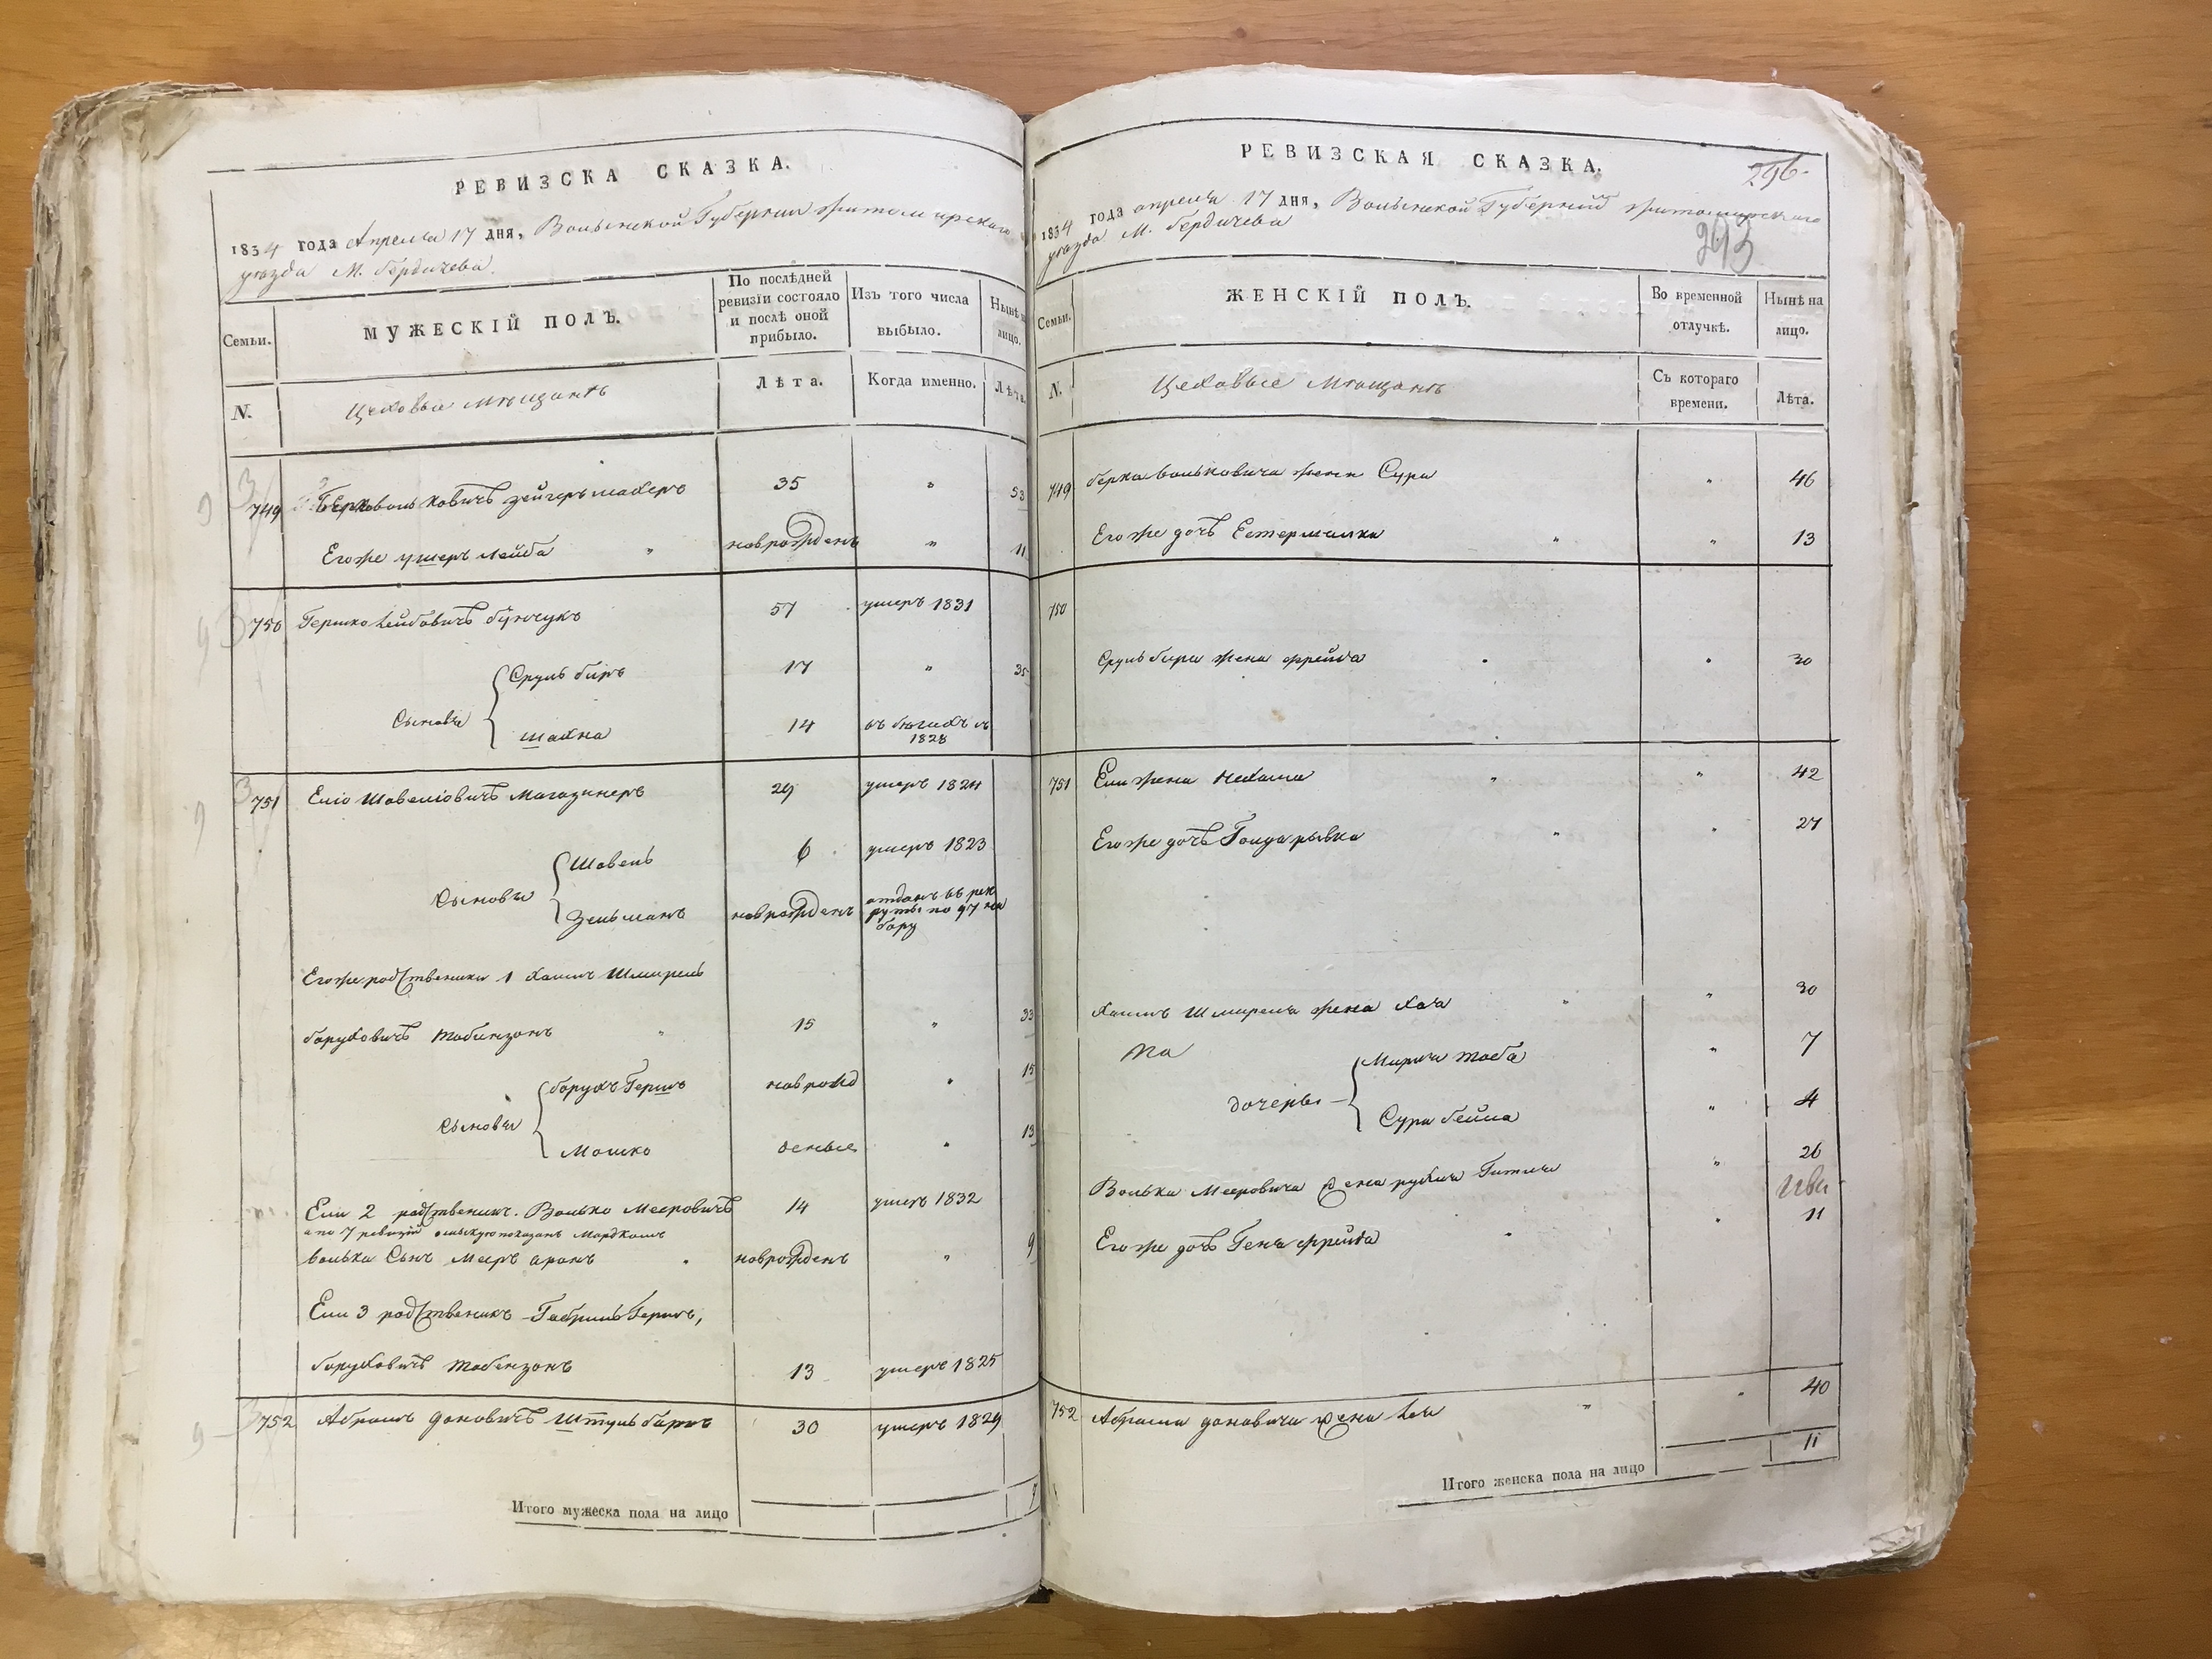 РЕВИЗСКА СКАЗКА.
1834 года Апреля 17 дня, Волынской Губернии Житомирского
уезда М. Бердичева.
Семьи.
МУЖЕСКІЙ ПОЛЪ.
По послѣдней ревизіи состояло и послѣ оной прибыло.
Изъ того числа выбыло.
Нынѣ на лицо.
N.
Цеховые Мѣщанѣ
Лѣта.
Когда именно.
Лѣта.
749 Берко Вольковичъ Зейгермахеръ 35 " 53
Егоже Ушеръ Лейба " новрожденъ " 11
750 Гершко Лейбовичъ Бунчукъ 57 умеръ 1831
Сруль Беръ 17 " 35
Сыновья
Шахна 14 въ бѣгахъ съ 1828
751 Еліо Шовеліовичъ Магазинеръ 29 умеръ 1824
Шовель 6 умеръ 1823
Сыновья
Зельманъ новрожденъ отданъ въ рек
руты по 97 на
бору
Егоже родственики 1 Хаимъ Шмирель
Боруховичъ Табинзонъ " 15 " 33
Борухъ Гершъ новрожд " 15
Сыновья
Мошко оеные " 13
Ели 2 родственик. Волько Мееровичъ 14 умеръ 1832
а по 7 ревизіи показанъ Мордкомъ
Волька Сынъ Мееръ Аронъ " новрожденъ " 9
Ели 3 родственикъ Габриль Гершъ,
Боруховичъ Табензонъ 13 умеръ 1825
752 Абрамъ Доновичъ Штульбаръ 30 умеръ 1829
Итого мужеска пола на лицо 9
РЕВИЗСКАЯ СКАЗКА.
296.
1834 года апреля 17 дня, Волынской Губерній Житомирского
уезда М. Бердичева
293
Семьи.
ЖЕНСКІЙ ПОЛЪ.
Во временной отлучкѣ.
Нынѣ на лицо.
N.
Цеховые Мѣщанѣ
Съ котораго времени.
Лѣта.
749 Берка Вольковича жена Сура " 46
Егоже дочь Естермалка " " 13
750
Сруль Бера жена Фрейда " " 30
751 Ели жена Нехама " " 42
Егоже дочь Голда рывка " " 27
Хаимъ Шмиреля жена Хая " " 30
Мирля Тоба " 7
дочеры
Сура Бейла " 4
Волька Мееровича жена рухля Гитля " 26
Егоже дочь Геня Фрейда " " 11
752 Абрама Доновича жена Лея " " 40
Итого женска пола на лицо 11